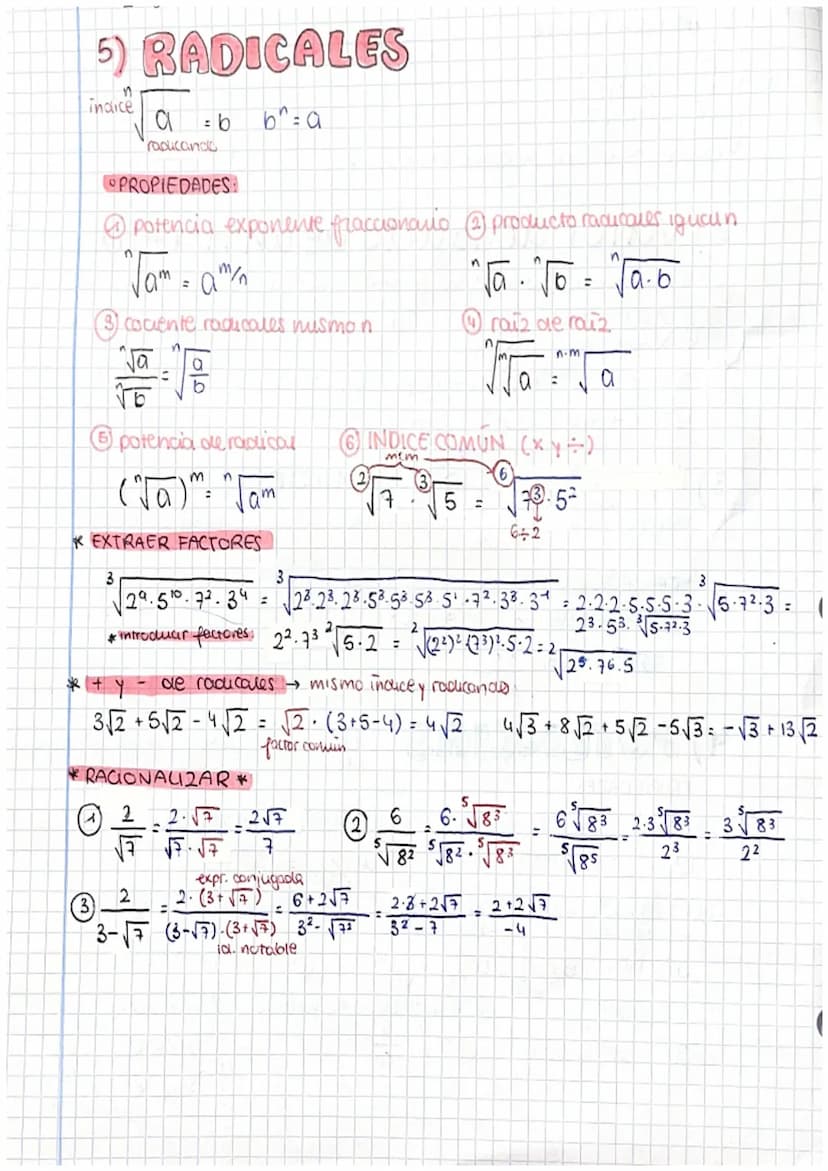 5) RADICALES
índice ⁿ√a = b bⁿ = a
radicando
• PROPIEDADES:
① potencia exponente fraccionario ② producto radicales igual n
ⁿ√(aᵐ) = a^(m/n) ⁿ√a · ⁿ√b = ⁿ√(a·b)
③ cociente radicales mismo n ④ raíz de raíz
ⁿ√a / ⁿ√b = ⁿ√(a/b) ⁿ√(ᵐ√a) = ⁿ·ᵐ√a
⑤ potencia de radical ⑥ INDICE COMÚN (x y ÷)
mcm
(ⁿ√a)ᵐ = ⁿ√(aᵐ) ²√7 · ³√5 = ⁶√(7³ · 5²)
6÷2
* EXTRAER FACTORES
³√(2⁹ · 5¹⁰ · 7² · 3⁴) = ³√(2³·2³·2³·5³·5³·5³·5¹·7²·3³·3¹) = 2·2·2·5·5·5·3·³√(5·7²·3) =
2³·5³·³√(5·7²·3)
* introducir factores: 2²·7³ ²√(5·2) = ²√((2²)²·(7³)²·5·2) = ²√(2⁵·76·5)
* + y - de radicales → mismo índice y radicando
3√2 + 5√2 - 4√2 = √2 · (3+5-4) = 4√2 4√3 + 8√2 + 5√2 - 5√3 = -√3 + 13√2
factor común
* RACIONALIZAR *
① 2/√7 = (2·√7)/(√7·√7) = 2√7/7 ② 6/⁵√8² = (6·⁵√8³)/(⁵√8²·⁵√8³) = 6⁵√8³/⁵√8⁵ = 2·3⁵√8³/2³ = 3⁵√8³/2²
expr. conjugada
③ 2/(3-√7) = (2·(3+√7))/((3-√7)·(3+√7)) = (6+2√7)/(3²-√7²) = (2·3+2√7)/(3²-7) = (2+2√7)/-4
id. notable